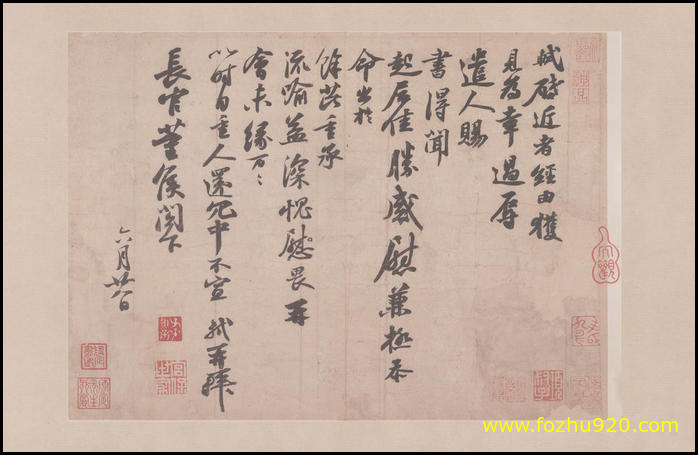 軾啟近者經由獲
見為幸過辱
遣人賜
書得聞
起居佳勝感慰兼極忝
命出於
餘芘重承
流喻益深愧慰畏再
會未緣万〻
以時自重人還冗中不宣 軾再拜
長官董侯閤下
六月廿八日
www.fozhu920.com